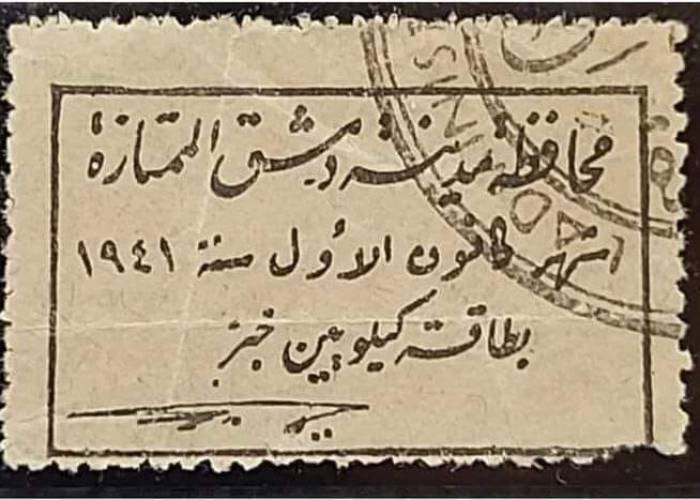 محافظة مدينة دمشق الممتازة
شهر كانون الاول سنة ١٩٤١
بطاقة كيلوين خبز